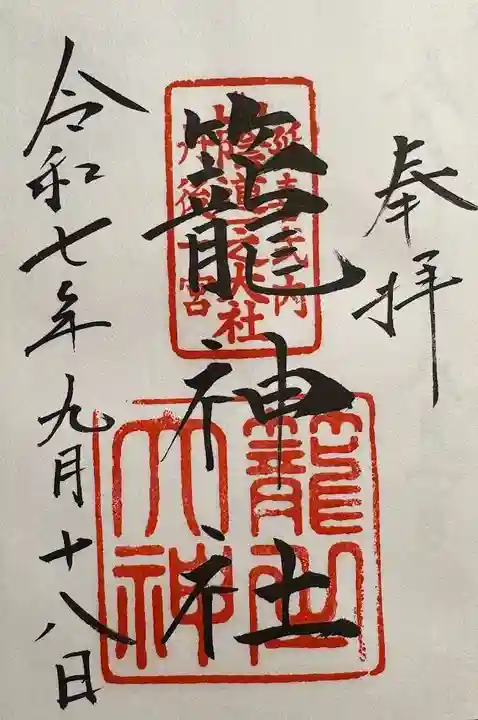 奉拝
延喜式内
山陰道之大社
丹後一宮
籠神社
籠之大神
令和七年九月十八日